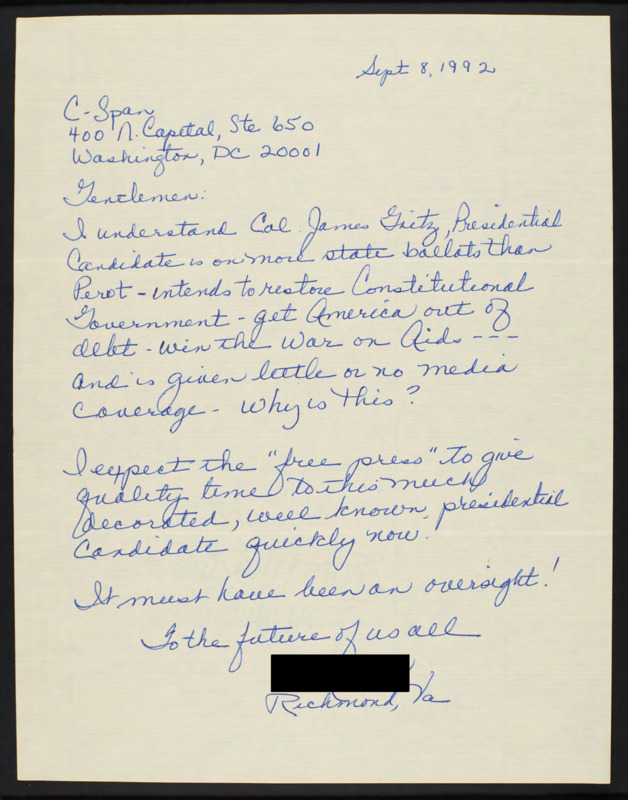 Sept 8, 1992
C-Span
400 N. Capital, Ste 650
Washington, DC 20001
Gentlemen:
I understand Col. James Gritz, Presidential
Candidate is on more state ballots than
Perot - intends to restore Constitutional
Government - get America out of
debt - win the War on Aids ---
and is given little or no media
coverage - Why is this?
I expect the "free press" to give
quality time to this much
decorated, well known, presidential
candidate quickly now!
It must have been an oversight!
To the future of us all
Richmond, Va